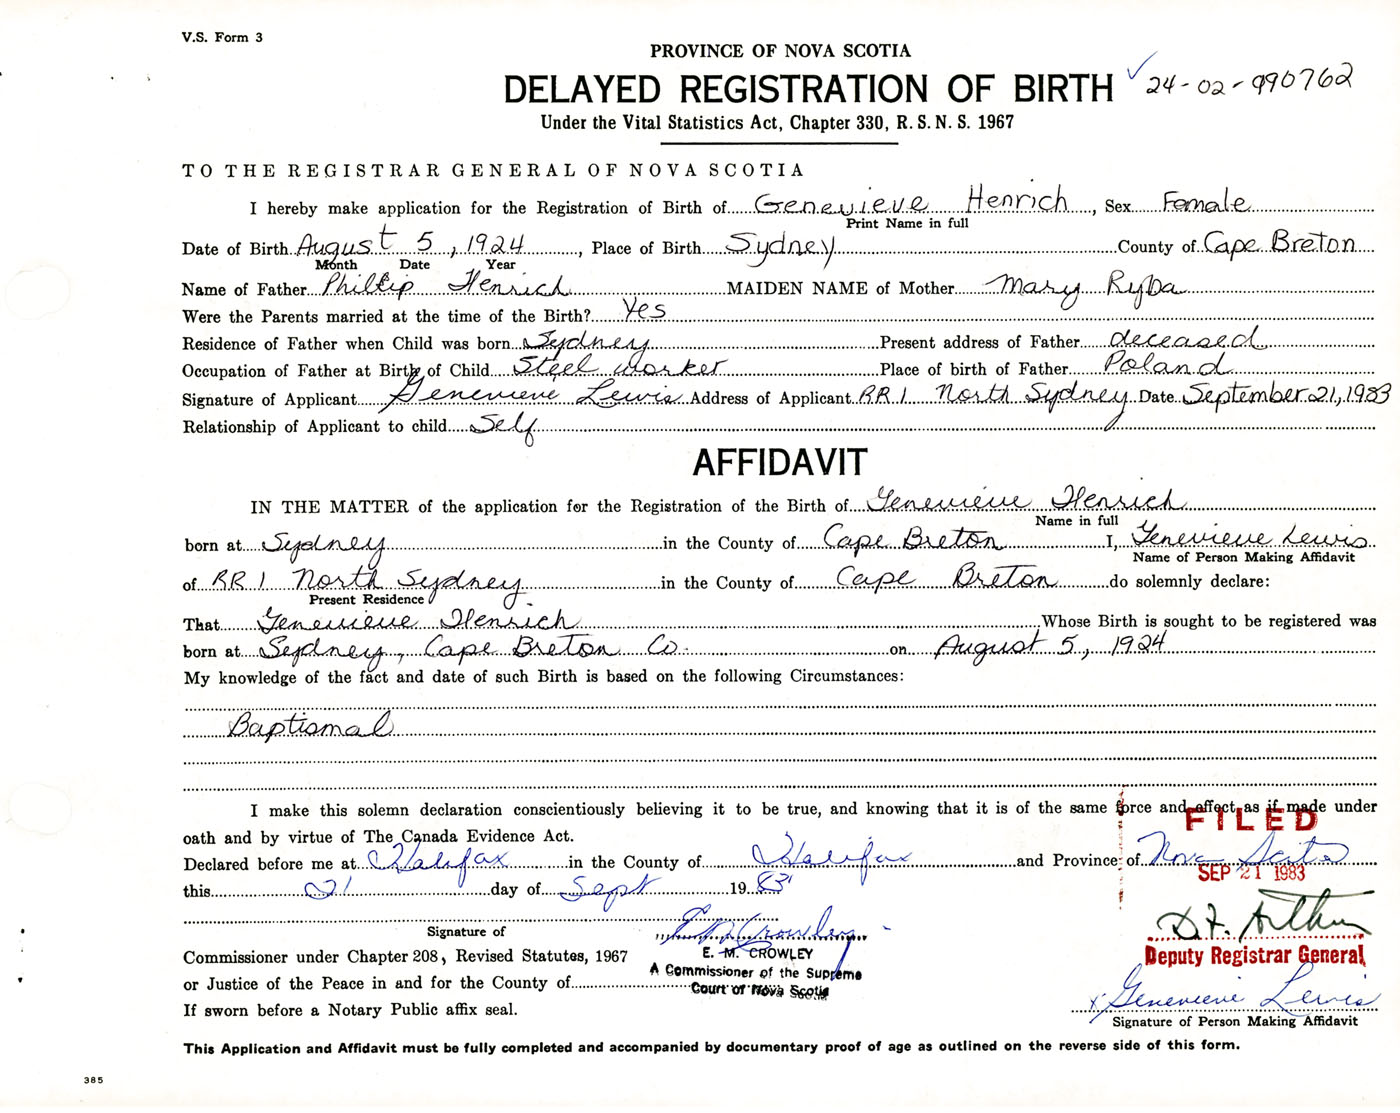 V.S. Form 3
PROVINCE OF NOVA SCOTIA
DELAYED REGISTRATION OF BIRTH ✓ 24-02-990762
Under the Vital Statistics Act, Chapter 330, R. S. N. S. 1967
TO THE REGISTRAR GENERAL OF NOVA SCOTIA
I hereby make application for the Registration of Birth of Genevieve Henrich, Sex Female
Print Name in full
Date of Birth August 5, 1924, Place of Birth Sydney County of Cape Breton
Month Date Year
Name of Father Phillip Henrich MAIDEN NAME of Mother Mary Ryba
Were the Parents married at the time of the Birth? Yes
Residence of Father when Child was born Sydney Present address of Father deceased
Occupation of Father at Birth of Child Steel worker Place of birth of Father Poland
Signature of Applicant Genevieve Lewis Address of Applicant RR 1 North Sydney Date September 21, 1983
Relationship of Applicant to child Self
AFFIDAVIT
IN THE MATTER of the application for the Registration of the Birth of Genevieve Henrich
Name in full
born at Sydney in the County of Cape Breton I, Genevieve Lewis
Name of Person Making Affidavit
of RR 1 North Sydney in the County of Cape Breton do solemnly declare:
Present Residence
That Genevieve Henrich Whose Birth is sought to be registered was
born at Sydney, Cape Breton Co. on August 5, 1924
My knowledge of the fact and date of such Birth is based on the following Circumstances:
Baptismal
I make this solemn declaration conscientiously believing it to be true, and knowing that it is of the same force and effect as if made under
oath and by virtue of The Canada Evidence Act.
FILED
Declared before me at Halifax in the County of Halifax and Province of Nova Scotia
SEP 21 1983
this 21 day of Sept 1983
E M Crowley
Signature of
E. M. CROWLEY
Deputy Registrar General
Commissioner under Chapter 208, Revised Statutes, 1967
A Commissioner of the Supreme
Court of Nova Scotia
or Justice of the Peace in and for the County of
x Genevieve Lewis
If sworn before a Notary Public affix seal.
Signature of Person Making Affidavit
This Application and Affidavit must be fully completed and accompanied by documentary proof of age as outlined on the reverse side of this form.
385